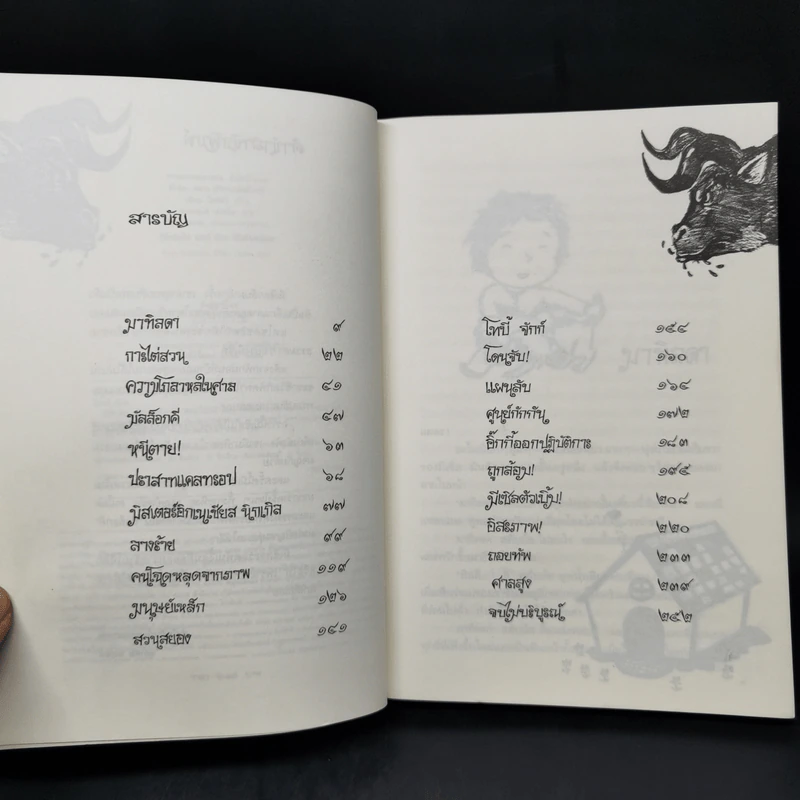 สารบัญ
มาทิลดา ๙
การไต่สวน ๒๒
ความโกลาหลในศาล ๔๑
มัลล็อกคี ๔๗
หนีตาย! ๖๓
ปราสาทแคลทรอป ๖๘
มิสเตอร์อิกเนเชียส นิกเกิล ๗๗
ลางร้าย ๙๙
คนโฉดหลุดจากภาพ ๑๑๙
มนุษย์เหล็ก ๑๒๖
สวนสยอง ๑๔๑
โทบี้ จักก์ ๑๕๔
โดนจับ! ๑๖๐
แผนลับ ๑๖๔
ศูนย์กักกัน ๑๗๒
อิ๊กกี้ออกปฏิบัติการ ๑๘๓
ถูกล้อม! ๑๙๕
มีเซิลตัวเบิ้ม! ๒๐๘
อิสะภาพ! ๒๒๐
ถอยทัพ ๒๓๓
ศาลสูง ๒๓๙
จบไม่บริบูรณ์ ๒๔๒